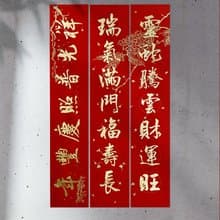 靈蛇騰雲財運旺
瑞氣滿門福壽長
祥光普照慶豐年